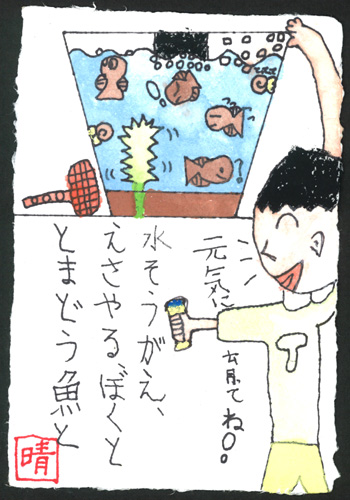 元気に
育てね〇。
水そうがえ、
えさやる、ぼくと
とまどう魚と
晴